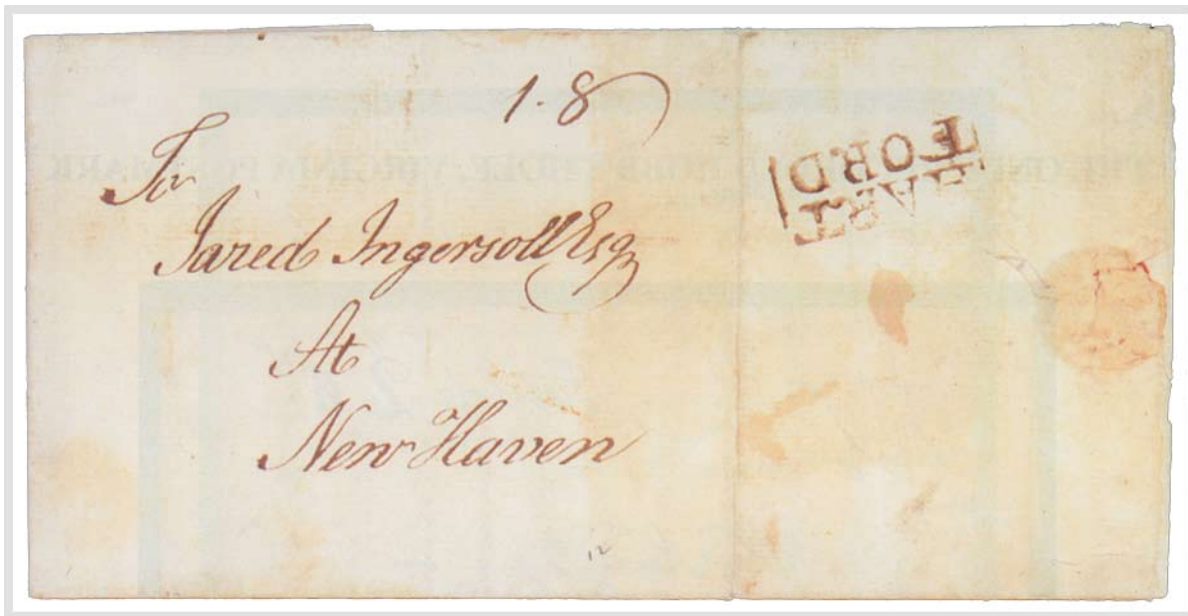 1·8
To
Jared Ingersoll Esq
At
New Haven
12
HART
FORD